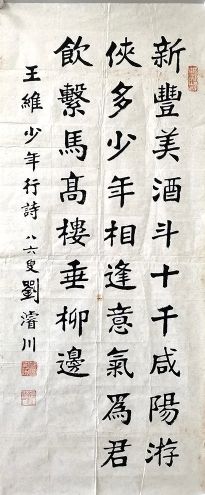 新豐美酒斗十千咸陽游
俠多少年相逢意氣為君
飲繫馬高樓垂柳邊
王維少年行詩 八六叟劉濬川